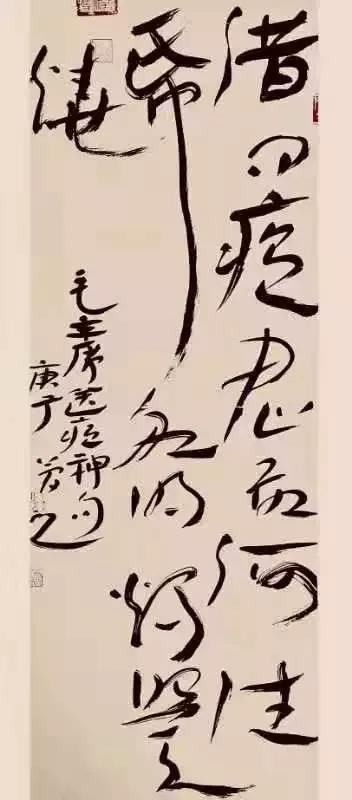 借问瘟君欲何往
帋船明烛照天
烧
毛主席送瘟神句
庚子